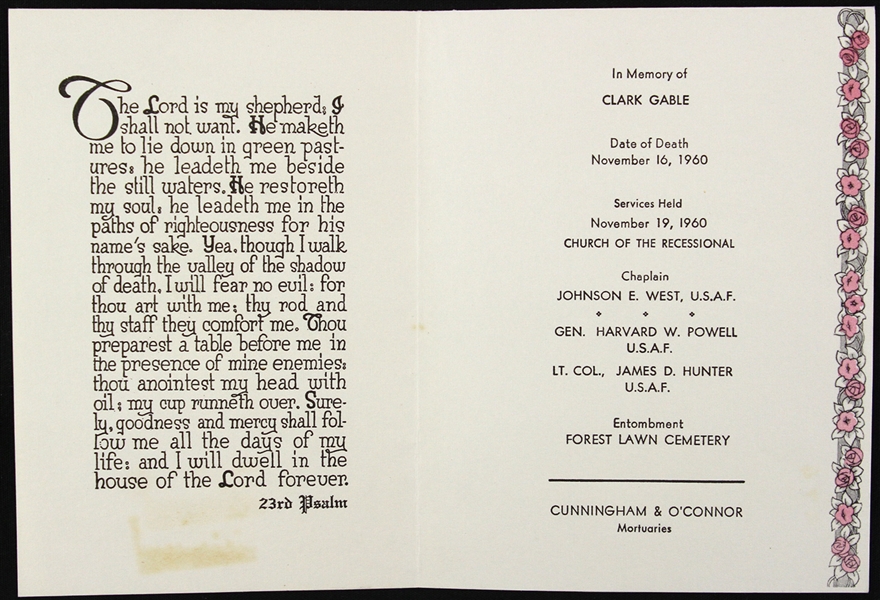 The Lord is my shepherd; I
shall not want. He maketh
me to lie down in green past-
ures: he leadeth me beside
the still waters. He restoreth
my soul: he leadeth me in the
paths of righteousness for his
name's sake. Yea, though I walk
through the valley of the shadow
of death, I will fear no evil: for
thou art with me; thy rod and
thy staff they comfort me. Thou
preparest a table before me in
the presence of mine enemies:
thou anointest my head with
oil; my cup runneth over. Sure-
ly, goodness and mercy shall fol-
low me all the days of my
life: and I will dwell in the
house of the Lord forever.
23rd Psalm
In Memory of
CLARK GABLE
Date of Death
November 16, 1960
Services Held
November 19, 1960
CHURCH OF THE RECESSIONAL
Chaplain
JOHNSON E. WEST, U.S.A.F.
GEN. HARVARD W. POWELL
U.S.A.F.
LT. COL., JAMES D. HUNTER
U.S.A.F.
Entombment
FOREST LAWN CEMETERY
CUNNINGHAM & O'CONNOR
Mortuaries